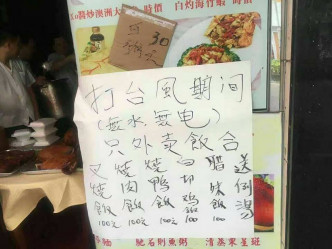 xo醬炒澳洲大 時價
白灼海竹蝦 時價
30
打台風期间
(無水無电)
只外卖飯合
叉燒飯100元
燒肉飯100元
燒鴨飯100元
白切鸡飯100
腊味飯
送例湯
龍石則魚粥
清蒸東星斑